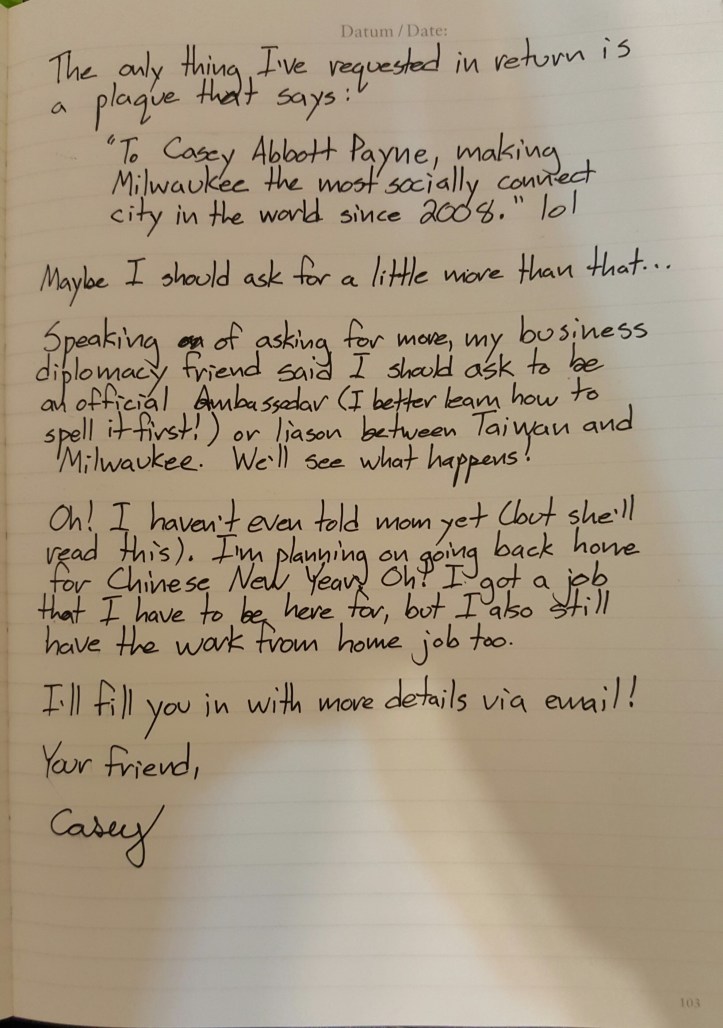 Datum / Date:
The only thing I've requested in return is
a plaque that says:
"To Casey Abbott Payne, making
Milwaukee the most socially connect
city in the world since 2008." lol
Maybe I should ask for a little more than that...
Speaking of asking for more, my business
diplomacy friend said I should ask to be
an official Ambassadar (I better learn how to
spell it first!) or liason between Taiwan and
Milwaukee. We'll see what happens!
Oh! I haven't even told mom yet (but she'll
read this). I'm planning on going back home
for Chinese New Year! Oh! I got a job
that I have to be here for, but I also still
have the work from home job too.
I'll fill you in with more details via email!
Your friend,
Casey
103